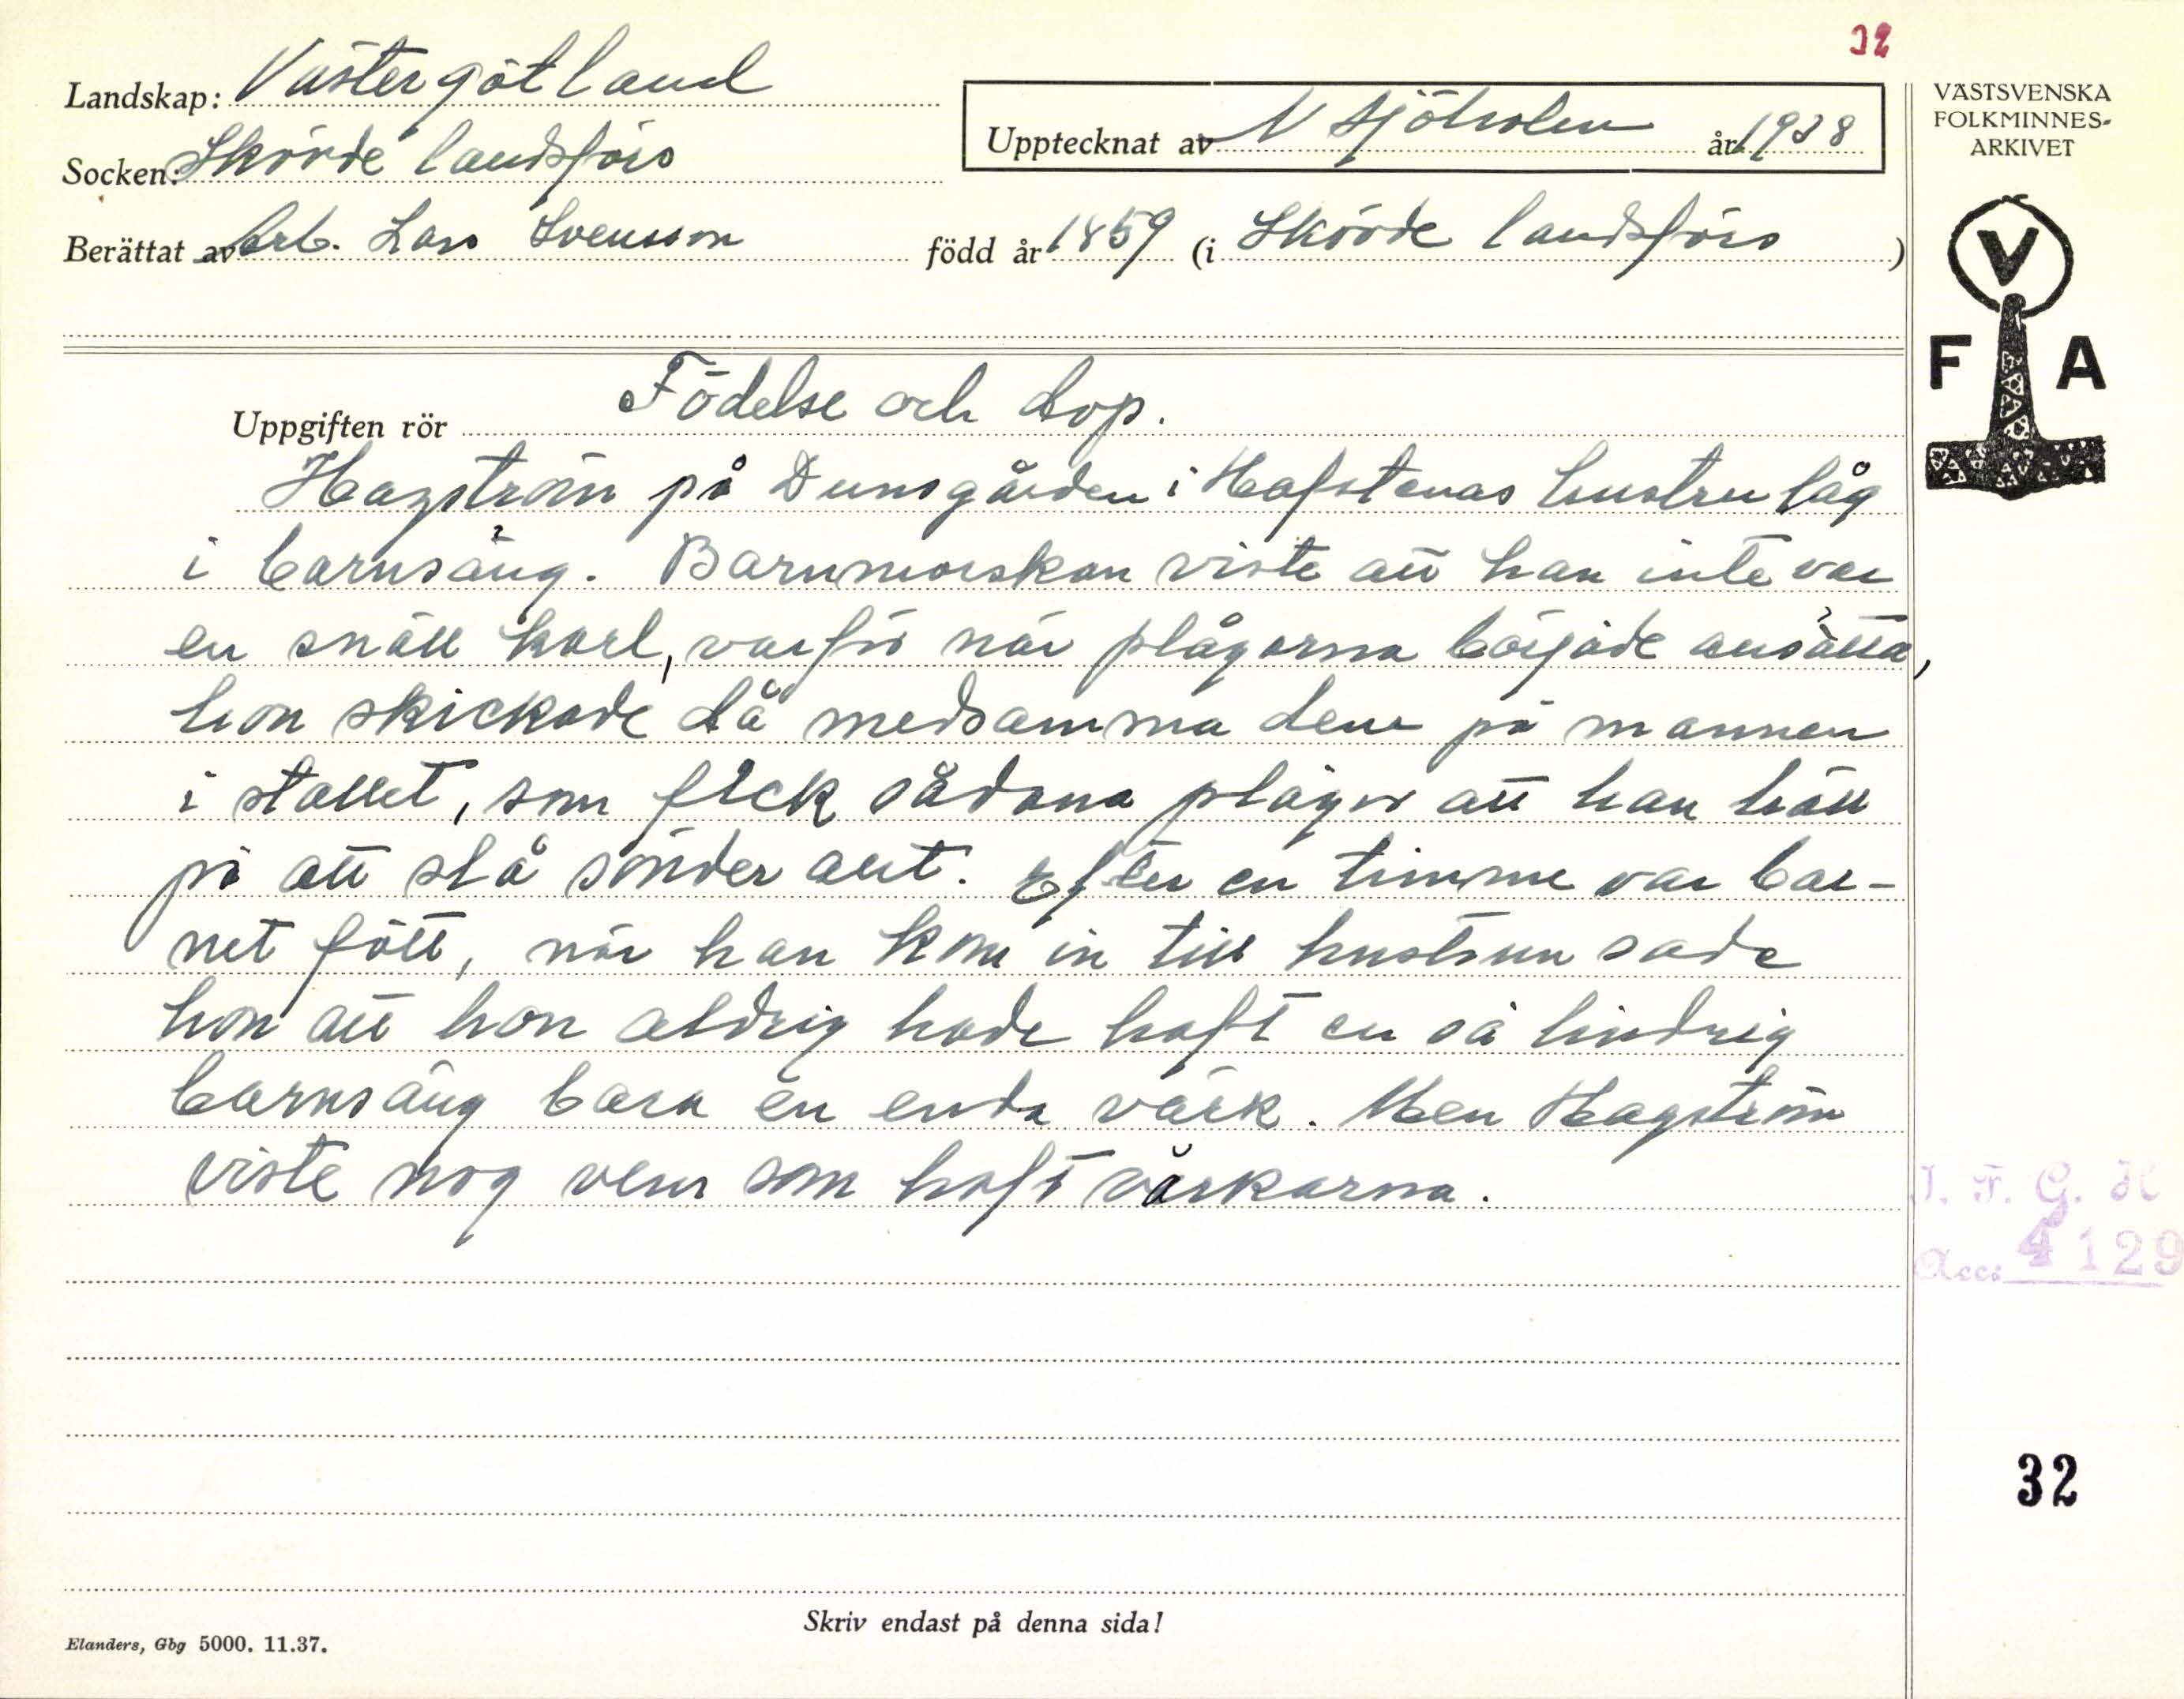 32
Landskap: Västergötland
Socken: Skövde landsförs
Upptecknat av N Sjöholm år 1938
Berättat av Arb. Lars Svensson född år 1859 (i Skövde landsförs )
VÄSTSVENSKA
FOLKMINNES-
ARKIVET
V
F A
Uppgiften rör Födelse och dop.
Hagström på Dunsgården i Hafstenas hustru låg
i barnsäng. Barnmorskan viste att han inte var
en snäll karl, varför när plågorna började ansätta,
hon skickade då medsamma dem på mannen
i stallet, som fick sådana plågor att han höll
på att slå sönder allt. Efter en timme var bar-
net fött, när han kom in till hustrun sade
hon att hon aldrig hade haft en så lindrig
barnsäng bara en enda värk. Men Hagström
viste nog vem som haft värkarna.
I. F. G. H
Acc: 4129
32
Skriv endast på denna sida!
Elanders, Gbg 5000. 11.37.